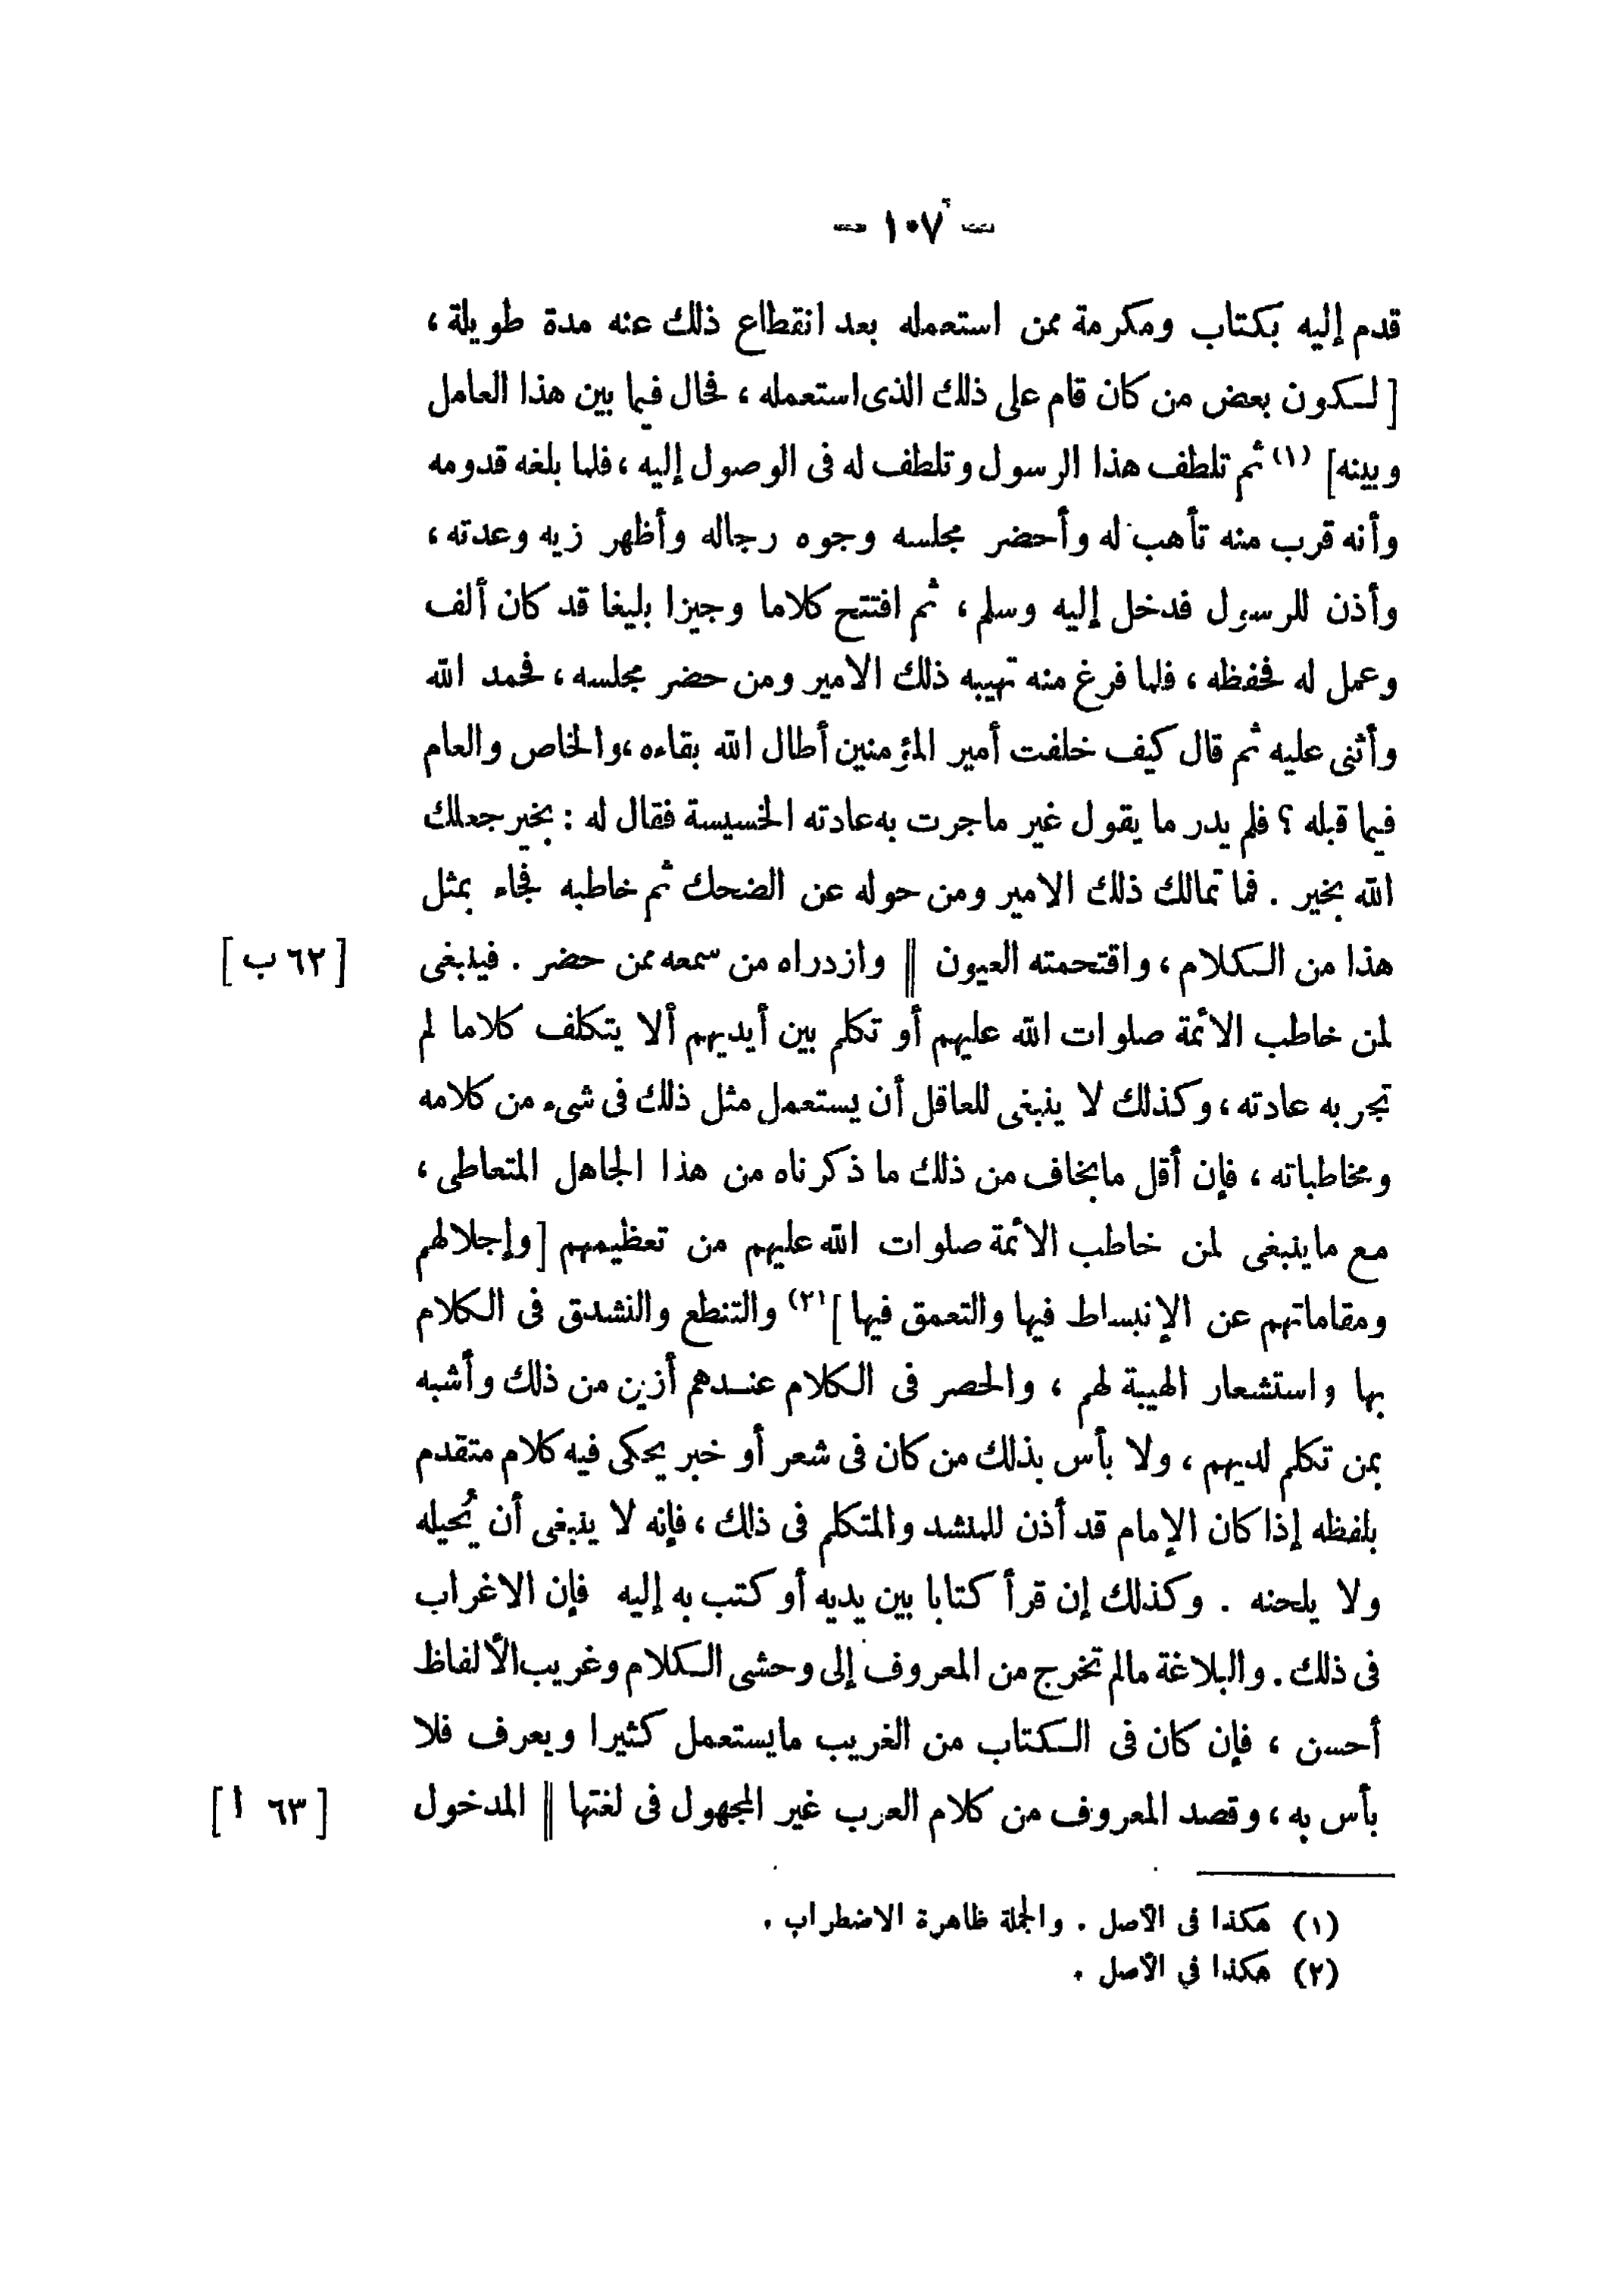 — ١٠٧ —
قدم إليه بكتاب ومكرمة ممن استعمله بعد انقطاع ذلك عنه مدة طويلة ،
[ لسكون بعض من كان قام على ذلك الذى استعمله ، فحال فيما بين هذا العامل
وبينه] (١) ثم تلطف هذا الرسول وتلطف له فى الوصول إليه ، فلما بلغه قدومه
وأنه قرب منه تأهب له وأحضر مجلسه وجوه رجاله وأظهر زيه وعدته ،
وأذن للرسول فدخل إليه وسلم ، ثم افتتح كلاما وجيزا بليغا قد كان ألف
وعمل له فحفظه ، فلما فرغ منه تهيبه ذلك الامير ومن حضر مجلسه ، فحمد الله
وأثنى عليه ثم قال كيف خلفت أمير المؤمنين أطال الله بقاءه ، والخاص والعام
فيما قبله ؟ فلم يدر ما يقول غير ماجرت به عادته الخسيسة فقال له : بخير جعلك
الله بخير . فما تمالك ذلك الامير ومن حوله عن الضحك ثم خاطبه فجاء بمثل
هذا من الكلام ، واقتحمته العيون || وازدراه من سمعه ممن حضر . فينبغى [ ٦٢ ب ]
لمن خاطب الأئمة صلوات الله عليهم أو تكلم بين أيديهم ألا يتكلف كلاما لم
تجر به عادته ، وكذلك لا ينبغى للعاقل أن يستعمل مثل ذلك فى شىء من كلامه
ومخاطباته ، فإن أقل مايخاف من ذلك ما ذكرناه من هذا الجاهل المتعاطى ،
مع ماينبغى لمن خاطب الأئمة صلوات الله عليهم من تعظيمهم [ وإجلالهم
ومقاماتهم عن الإنبساط فيها والتعمق فيها ] (٢) والتنطع والتشدق فى الكلام
بها واستشعار الهيبة لهم ، والحصر فى الكلام عندهم أزين من ذلك وأشبه
بمن تكلم لديهم ، ولا بأس بذلك من كان فى شعر أو خبر يحكى فيه كلام متقدم
بلفظه إذا كان الإمام قد أذن للمنشد والمتكلم فى ذلك ، فإنه لا ينبغى أن يُحيله
ولا يلحنه . وكذلك إن قرأ كتابا بين يديه أو كتب به إليه فإن الاغراب
فى ذلك . والبلاغة مالم تخرج من المعروف إلى وحشى الكلام وغريب الألفاظ
أحسن ، فإن كان فى الكتاب من الغريب مايستعمل كثيرا ويعرف فلا
بأس به ، وقصد المعروف من كلام العرب غير المجهول فى لغتها || المدخول [ ٦٣ ا ]
(١) هكذا فى الأصل . والجملة ظاهرة الاضطراب .
(٢) هكذا في الأصل .